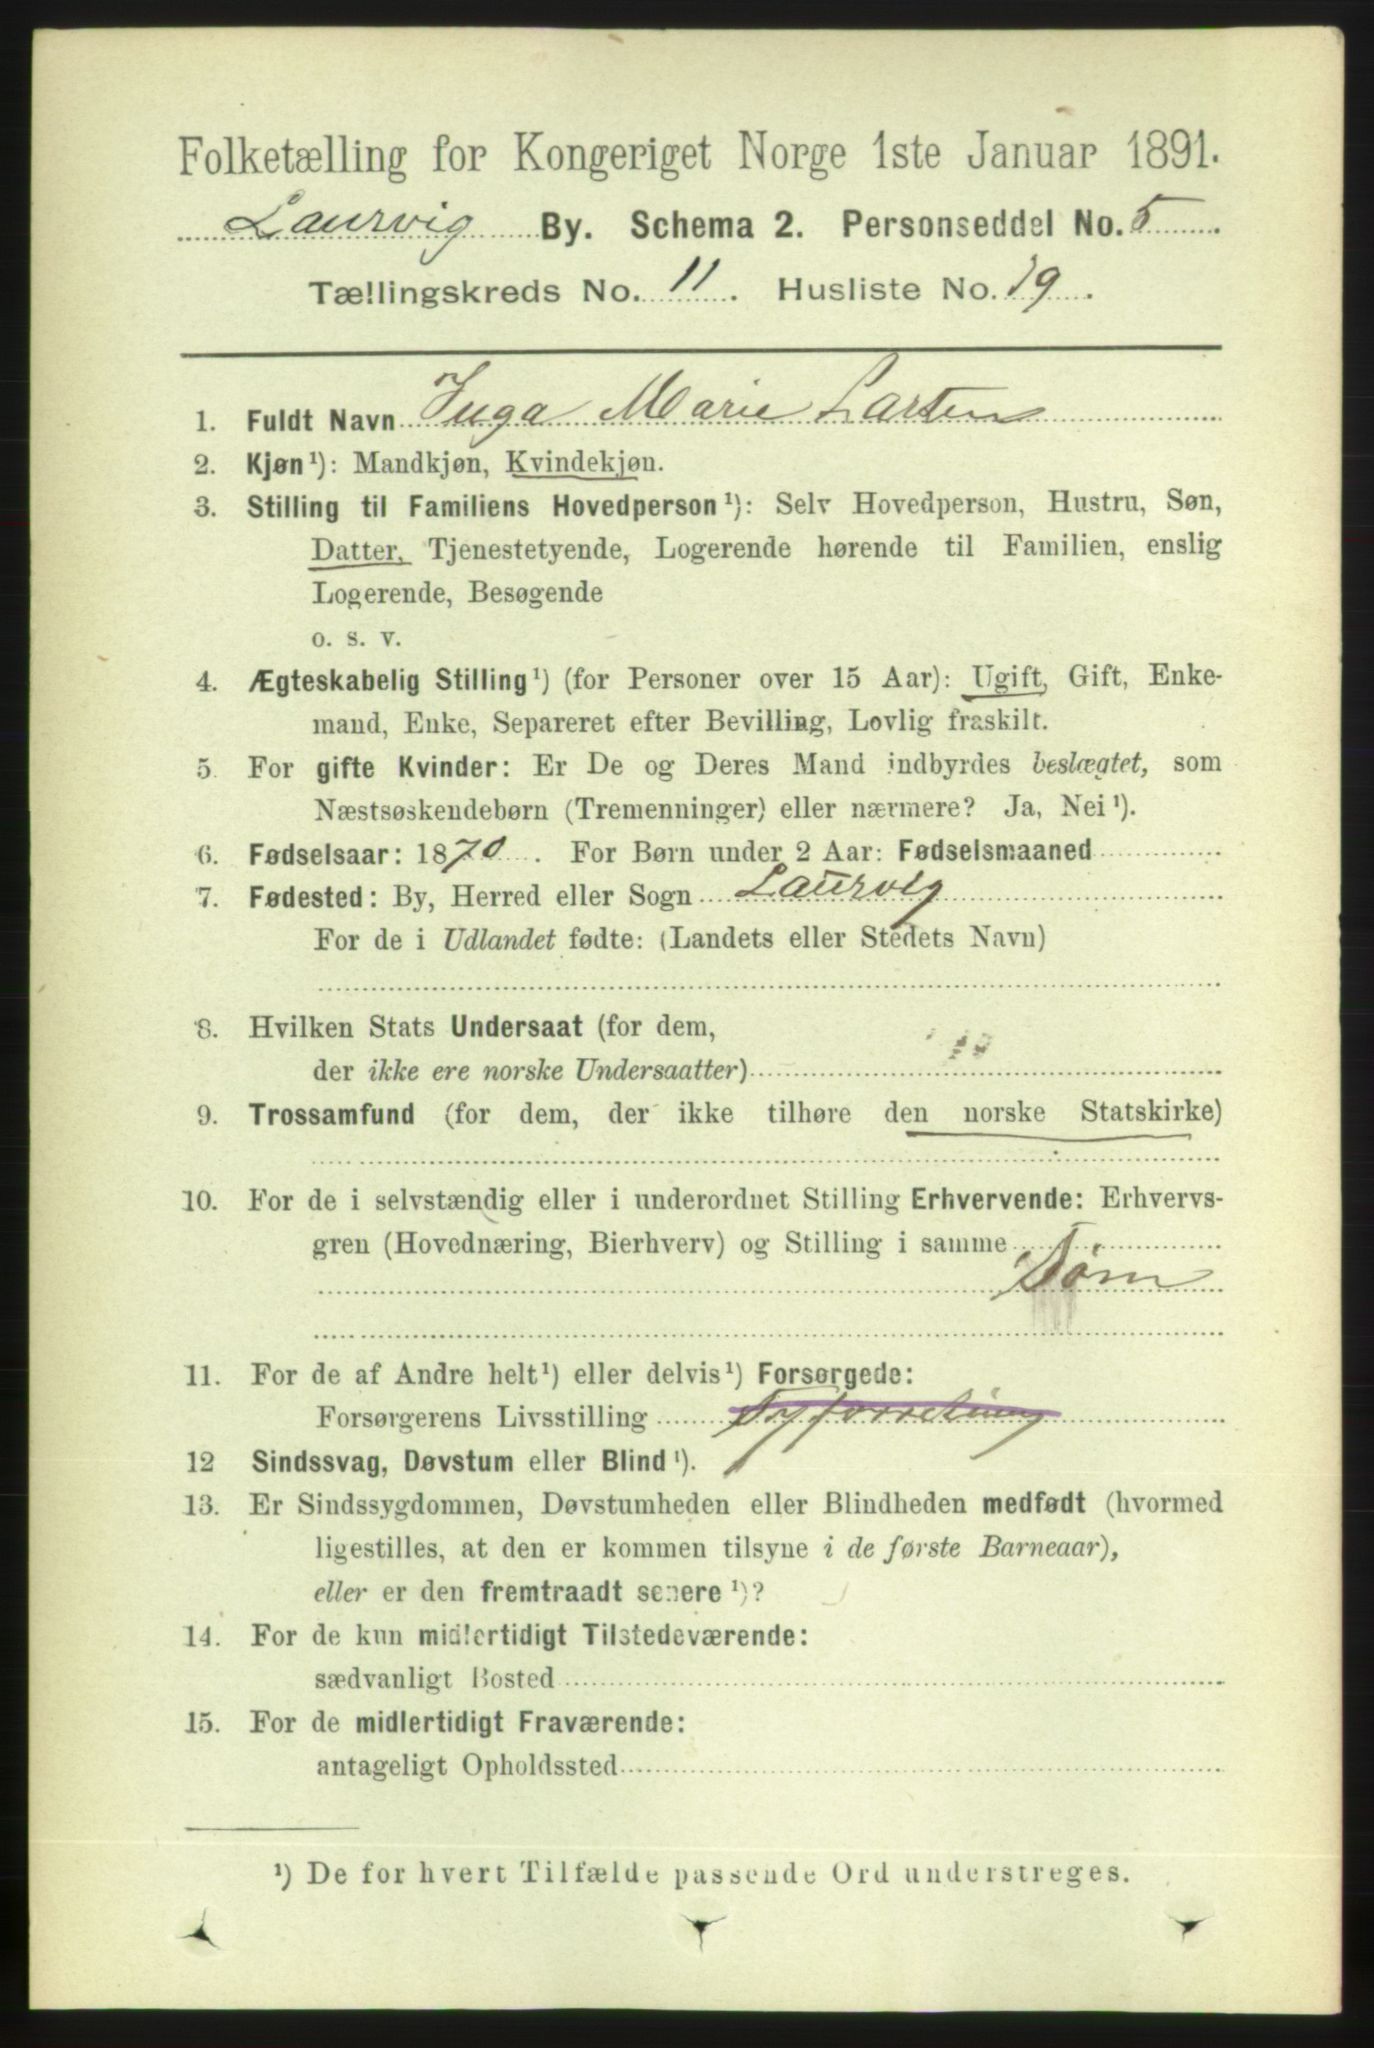 Folketælling for Kongeriget Norge 1ste Januar 1891.
Laurvig By. Schema 2. Personseddel No. 5
Tællingskreds No. 11. Husliste No. 19.
1. Fuldt Navn Inga Marie Larsen
2. Kjøn¹): Mandkjøn, Kvindekjøn.
3. Stilling til Familiens Hovedperson¹): Selv Hovedperson, Hustru, Søn,
Datter, Tjenestetyende, Logerende hørende til Familien, enslig
Logerende, Besøgende
o. s. v.
4. Ægteskabelig Stilling¹) (for Personer over 15 Aar): Ugift, Gift, Enke-
mand, Enke, Separeret efter Bevilling, Lovlig fraskilt.
5. For gifte Kvinder: Er De og Deres Mand indbyrdes beslægtet, som
Næstsøskendebørn (Tremenninger) eller nærmere? Ja, Nei¹).
6. Fødselsaar: 1870. For Børn under 2 Aar: Fødselsmaaned
7. Fødested: By, Herred eller Sogn Laurvig
For de i Udlandet fødte: (Landets eller Stedets Navn)
8. Hvilken Stats Undersaat (for dem,
der ikke ere norske Undersaatter)
9. Trossamfund (for dem, der ikke tilhøre den norske Statskirke)
10. For de i selvstændig eller i underordnet Stilling Erhvervende: Erhvervs-
gren (Hovednæring, Bierhverv) og Stilling i samme
11. For de af Andre helt¹) eller delvis¹) Forsørgede:
Forsørgerens Livsstilling
12 Sindssvag, Døvstum eller Blind¹).
13. Er Sindssygdommen, Døvstumheden eller Blindheden medfødt (hvormed
ligestilles, at den er kommen tilsyne i de første Barneaar),
eller er den fremtraadt senere¹)?
14. For de kun midlertidigt Tilstedeværende:
sædvanligt Bosted
15. For de midlertidigt Fraværende:
antageligt Opholdssted
¹) De for hvert Tilfælde passende Ord understreges.